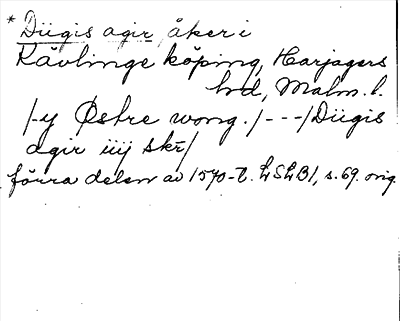 * Dügis agir, åker i
Kävlinge köping, Harjagers
hd, Malm. l.
/-y Østre wong./---/Dügis
agir iiij skr/
förra delen av 1570-t. LSLB1, s.69. orig.